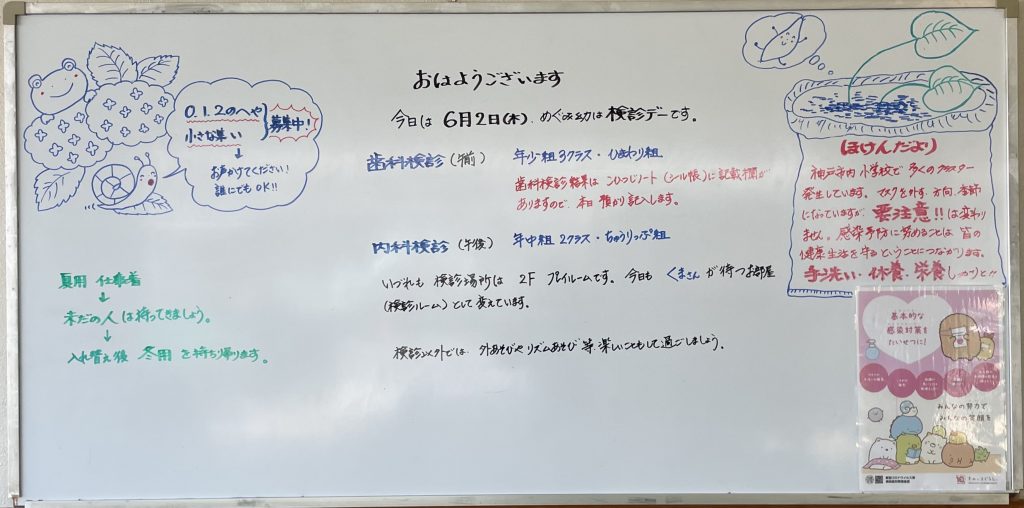 おはようございます
今日は 6月2日(木)、めぐみ幼は 検診デーです。
歯科検診 (午前) 年少組3クラス・ひまわり組
歯科検診結果は こひつじノート(シール帳)に記載欄が
ありますので、本日 預かり記入します。
内科検診 (午後) 年中組2クラス・ちゅうりっぷ組
いづれも 検診場所は 2F プレイルームです。今日も くまさん が 待つお部屋
(検診ルーム)として 整えています。
検診以外では、外あそびや リズムあそび 等、楽しいこともして過ごしましょう。
0.1.2のへや
小さな集い
募集中!
↓
お声かけてください!
誰にでもOK!!
夏用
↓
未だの人 は持ってきましょう。
↓
入れ替え後 冬用 を持ち帰ります。
ほけんだより
神戸市内 小学校で 多くのクラスター
発生しています。マスクを外す 方向、季節
になっていますが、要注意!!は変わり
ません。感染予防に努めることは 皆の
健康生活を守るということにつながります。
手洗い・休養・栄養 しっかりと!!
基本的な
感染対策を
たいせつに!
みんなの努力で
みんなの笑顔を